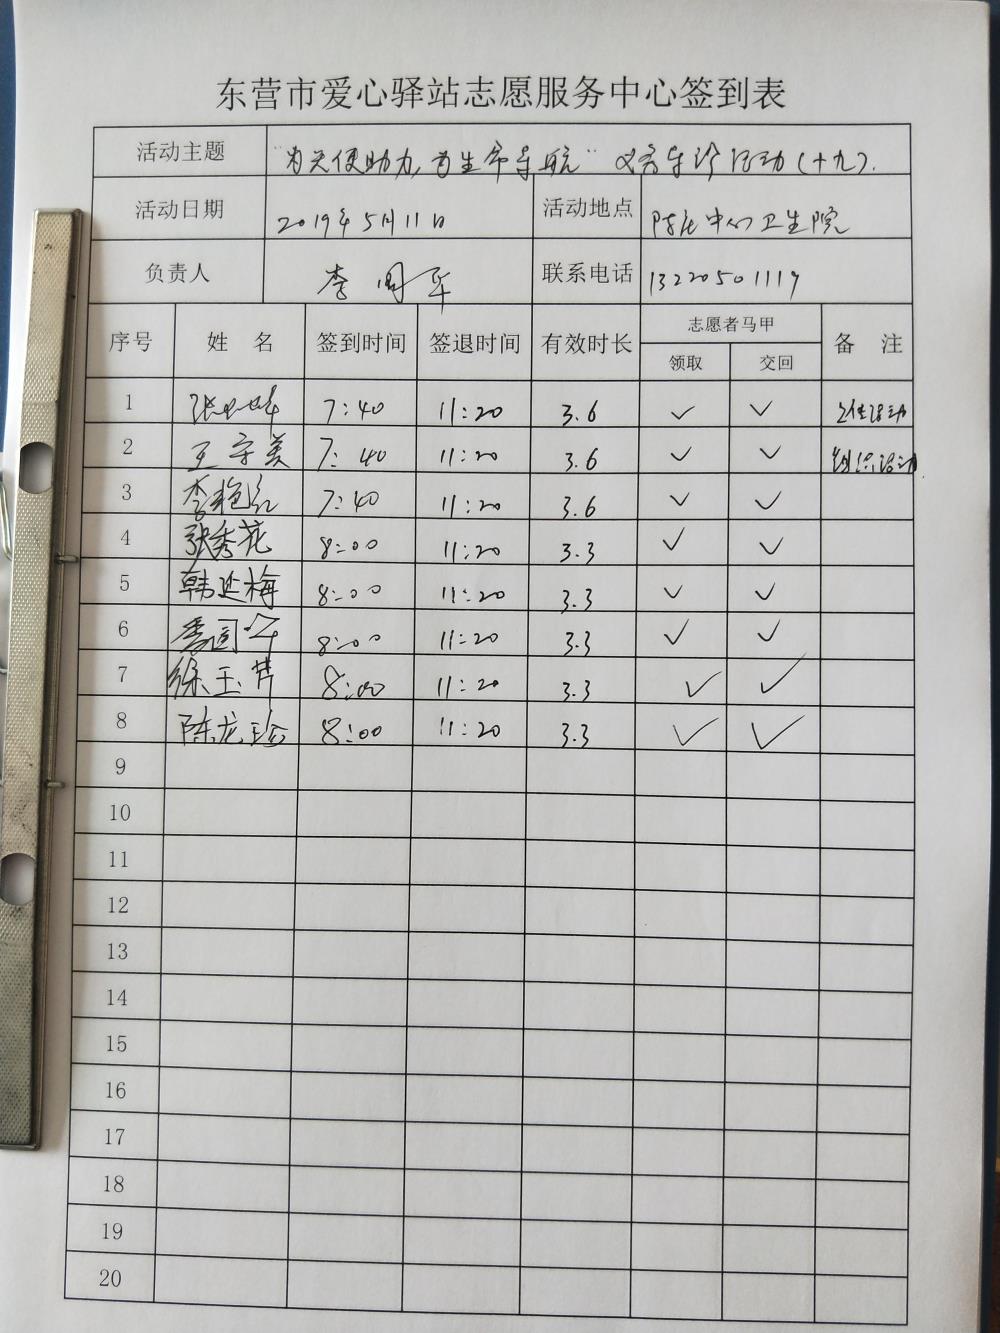 东营市爱心驿站志愿服务中心签到表
活动主题 "为天使助力,为生命导航" 义务导诊活动(十九).
活动日期 2019年5月11日 活动地点 陈庄中心卫生院
负责人 李国军 联系电话 13220501119
序号 姓 名 签到时间 签退时间 有效时长 志愿者马甲 备 注
领取 交回
1 7:40 11:20 3.6 ✓ ✓ 活动
2 王守美 7:40 11:20 3.6 ✓ ✓ 活动
3 李艳红 7:40 11:20 3.6 ✓ ✓
4 张秀花 8:00 11:20 3.3 ✓ ✓
5 韩延梅 8:00 11:20 3.3 ✓ ✓
6 李国军 8:00 11:20 3.3 ✓ ✓
7 徐玉芹 8:00 11:20 3.3 ✓ ✓
8 陈龙珍 8:00 11:20 3.3 ✓ ✓
9
10
11
12
13
14
15
16
17
18
19
20